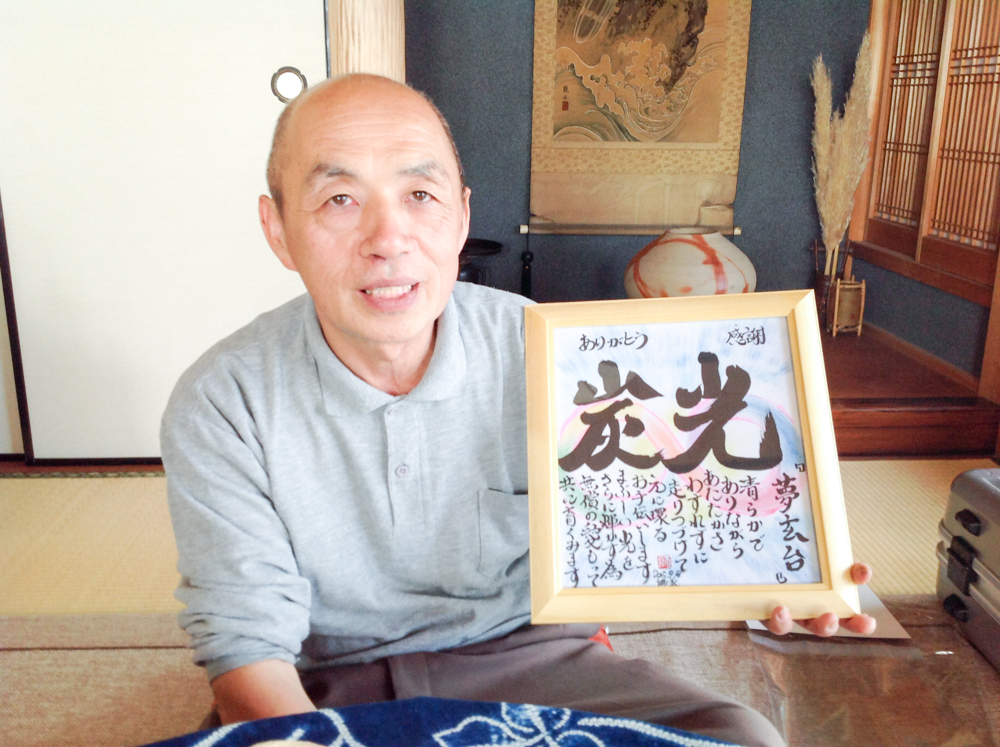 感謝
ありがとう
光
炭
「夢玄台」
青らかで
ありながら
あたたかさ
わすれずに
走りつづけて
元に環る
お手伝いします
まぶしい光を
さらに輝かす為
無償の愛もって
共に育くみます